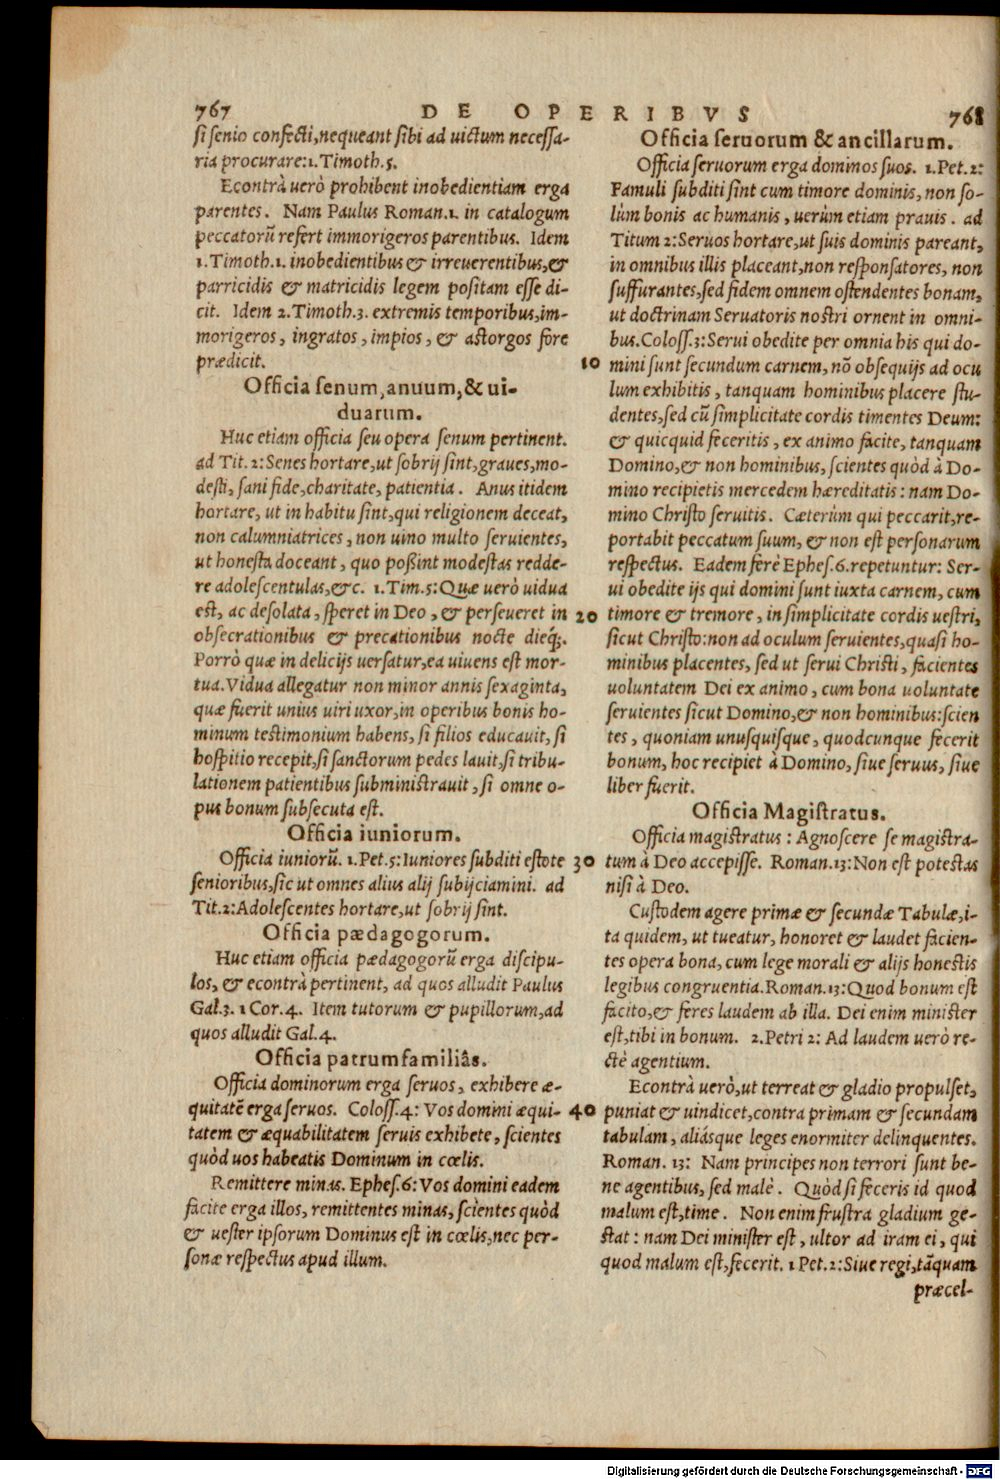 767 DE OPERIBVS 768
si senio confecti, nequeant sibi ad uictum necessa-
ria procurare: 1. Timoth. 5.
Econtrà uerò prohibent inobedientiam erga
parentes. Nam Paulus Roman. 1. in catalogum
peccatorũ refert immorigeros parentibus. Idem
1. Timoth. 1. inobedientibus & irreuerentibus, &
parricidis & matricidis legem positam esse di-
cit. Idem 2. Timoth. 3. extremis temporibus, im-
morigeros, ingratos, impios, & astorgos fore
prædicit.
Officia senum, anuum, & ui-
duarum.
Huc etiam officia seu opera senum pertinent.
ad Tit. 2: Senes hortare, ut sobrij sint, graues, mo-
desti, sani fide, charitate, patientia. Anus itidem
hortare, ut in habitu sint, qui religionem deceat,
non calumniatrices, non uino multo seruientes,
ut honesta doceant, quo possint modestas redde-
re adolescentulas, &c. 1. Tim. 5: Quæ uerò uidua
est, ac desolata, speret in Deo, & perseueret in
obsecrationibus & precationibus nocte dieq́;.
Porrò quæ in delicijs uersatur, ea uiuens est mor-
tua. Vidua allegatur non minor annis sexaginta,
quæ fuerit unius uiri uxor, in operibus bonis ho-
minum testimonium habens, si filios educauit, si
hospitio recepit, si sanctorum pedes lauit, si tribu-
lationem patientibus subministrauit, si omne o-
pus bonum subsecuta est.
Officia iuniorum.
Officia iuniorũ. 1. Pet. 5: Iuniores subditi estote
senioribus, sic ut omnes alius alij subijciamini. ad
Tit. 2: Adolescentes hortare, ut sobrij sint.
Officia pædagogorum.
Huc etiam officia pædagogorũ erga discipu-
los, & econtrà pertinent, ad quos alludit Paulus
Gal. 3. 1 Cor. 4. Item tutorum & pupillorum, ad
quos alludit Gal. 4.
Officia patrumfamiliâs.
Officia dominorum erga seruos, exhibere æ-
quitatẽ erga seruos. Coloss. 4: Vos domini æqui-
tatem & æquabilitatem seruis exhibete, scientes
quòd uos habeatis Dominum in cœlis.
Remittere minas. Ephes. 6: Vos domini eadem
facite erga illos, remittentes minas, scientes quòd
& uester ipsorum Dominus est in cœlis, nec per-
sonæ respectus apud illum.
Officia seruorum & ancillarum.
Officia seruorum erga dominos suos. 1. Pet. 2:
Famuli subditi sint cum timore dominis, non so-
lùm bonis ac humanis, uerùm etiam prauis. ad
Titum 2: Seruos hortare, ut suis dominis pareant,
in omnibus illis placeant, non responsatores, non
suffurantes, sed fidem omnem ostendentes bonam,
ut doctrinam Seruatoris nostri ornent in omni-
bus. Coloss. 3: Serui obedite per omnia his qui do-
10 mini sunt secundum carnem, nõ obsequijs ad ocu
lum exhibitis, tanquam hominibus placere stu-
dentes, sed cũ simplicitate cordis timentes Deum:
& quicquid feceritis, ex animo facite, tanquam
Domino, & non hominibus, scientes quòd à Do-
mino recipietis mercedem hæreditatis: nam Do-
mino Christo seruitis. Cæterùm qui peccarit, re-
portabit peccatum suum, & non est personarum
respectus. Eadem ferè Ephes. 6. repetuntur: Ser-
ui obedite ijs qui domini sunt iuxta carnem, cum
20 timore & tremore, in simplicitate cordis uestri,
sicut Christo: non ad oculum seruientes, quasi ho-
minibus placentes, sed ut serui Christi, facientes
uoluntatem Dei ex animo, cum bona uoluntate
seruientes sicut Domino, & non hominibus: scien
tes, quoniam unusquisque, quodcunque fecerit
bonum, hoc recipiet à Domino, siue seruus, siue
liber fuerit.
Officia Magistratus.
Officia magistratus: Agnoscere se magistra-
30 tum à Deo accepisse. Roman. 13: Non est potestas
nisi à Deo.
Custodem agere primæ & secundæ Tabulæ, i-
ta quidem, ut tueatur, honoret & laudet facien-
tes opera bona, cum lege morali & alijs honestis
legibus congruentia. Roman. 13: Quod bonum est
facito, & feres laudem ab illa. Dei enim minister
est, tibi in bonum. 2. Petri 2: Ad laudem uerò re-
ctè agentium.
Econtrà uerò, ut terreat & gladio propulset,
40 puniat & uindicet, contra primam & secundam
tabulam, aliásque leges enormiter delinquentes.
Roman. 13: Nam principes non terrori sunt be-
ne agentibus, sed malè. Quòd si feceris id quod
malum est, time. Non enim frustra gladium ge-
stat: nam Dei minister est, ultor ad iram ei, qui
quod malum est, fecerit. 1 Pet. 2: Siue regi, tãquam
præcel-
Digitalisierung gefördert durch die Deutsche Forschungsgemeinschaft - DFG